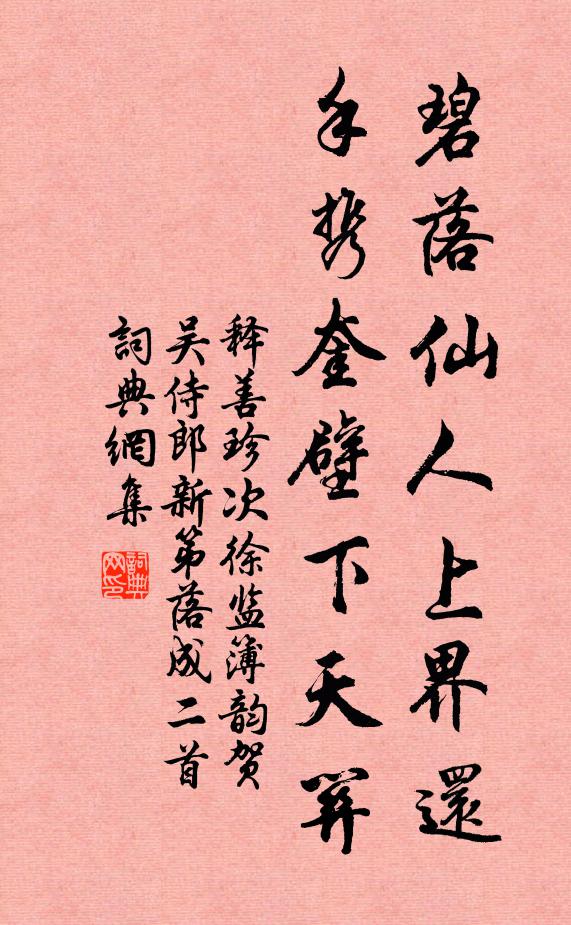 碧落仙人上界還
手携奎壁下天關
释善珍次徐监簿韵贺
吴侍郎新第落成二首
詞典網集
詞典网印